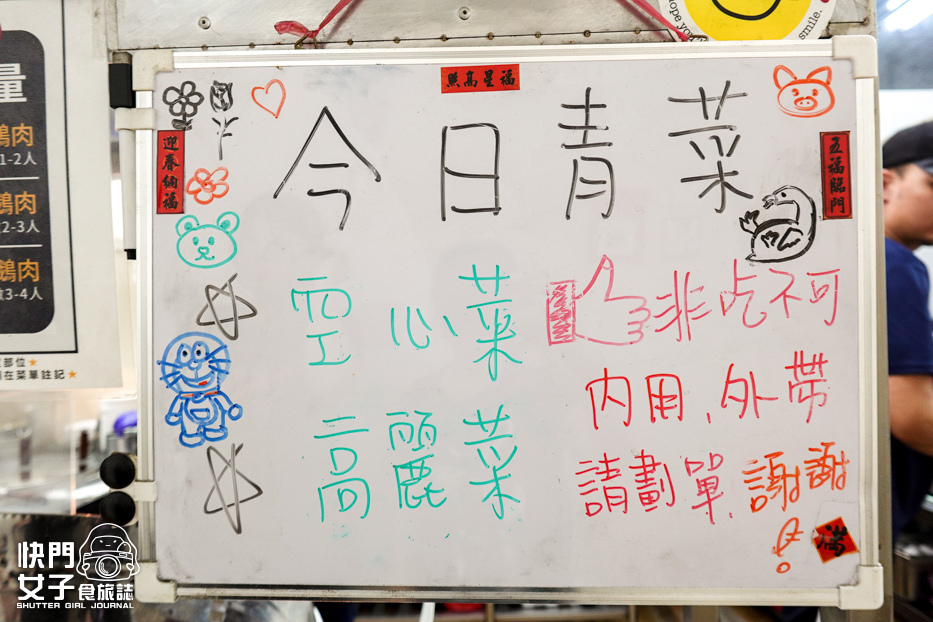 量
鵝肉
1-2人
鵝肉
2-3人
鵝肉
3-4人
部位★
在菜單註記★
hope you
smile.
照高星福
迎春納福
五福臨門
今日青菜
空心菜
高麗菜
非吃不可
內用、外帶
請劃單,謝謝
滿
快門
女子食旅誌
SHUTTER GIRL JOURNAL